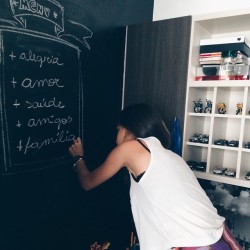 MENU
+ alegria
+ amor
+ saúde
+ amigos
+ família